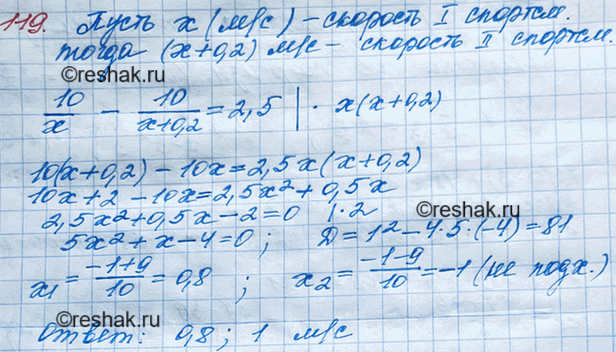 119. Пусть x (м/с) - скорость I спортсм.
тогда (x+0,2) м/с - скорость II спортсм.
©reshak.ru
10/x - 10/(x+0,2) = 2,5 | · x(x+0,2)
10(x+0,2) - 10x = 2,5x(x+0,2)
10x + 2 - 10x = 2,5x² + 0,5x
2,5x² + 0,5x - 2 = 0 |·2
©reshak.ru
5x² + x - 4 = 0 ; D = 1² - 4·5·(-4) = 81
x₁ = (-1+9)/10 = 0,8 ; x₂ = (-1-9)/10 = -1 (не подх.)
©reshak.ru
Ответ: 0,8 ; 1 м/с